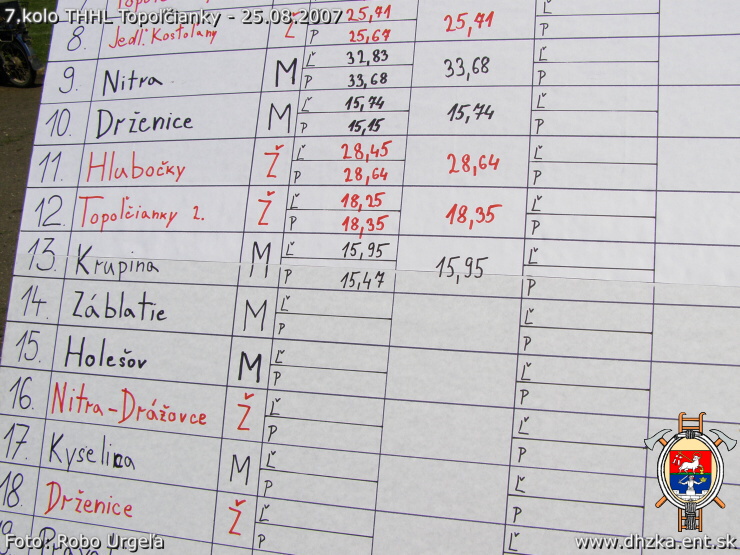 7.kolo THHL Topoľčianky - 25.08.2007
8. Jedl. Kostolany Ž Ľ 25,71 P 25,67 25,71
9. Nitra M Ľ 32,83 P 33,68 33,68
10. Drženice M Ľ 15,74 P 15,15 15,74
11. Hlubočky Ž Ľ 28,45 P 28,64 28,64
12. Topoľčianky 2. Ž Ľ 18,25 P 18,35 18,35
13. Krupina M Ľ 15,95 P 15,47 15,95
14. Záblatie M Ľ P
15. Holešov M Ľ P
16. Nitra-Drážovce Ž Ľ P
17. Kyselica M Ľ P
18. Drženice Ž Ľ P
Foto: Robo Urgela
www.dhzka-ent.sk